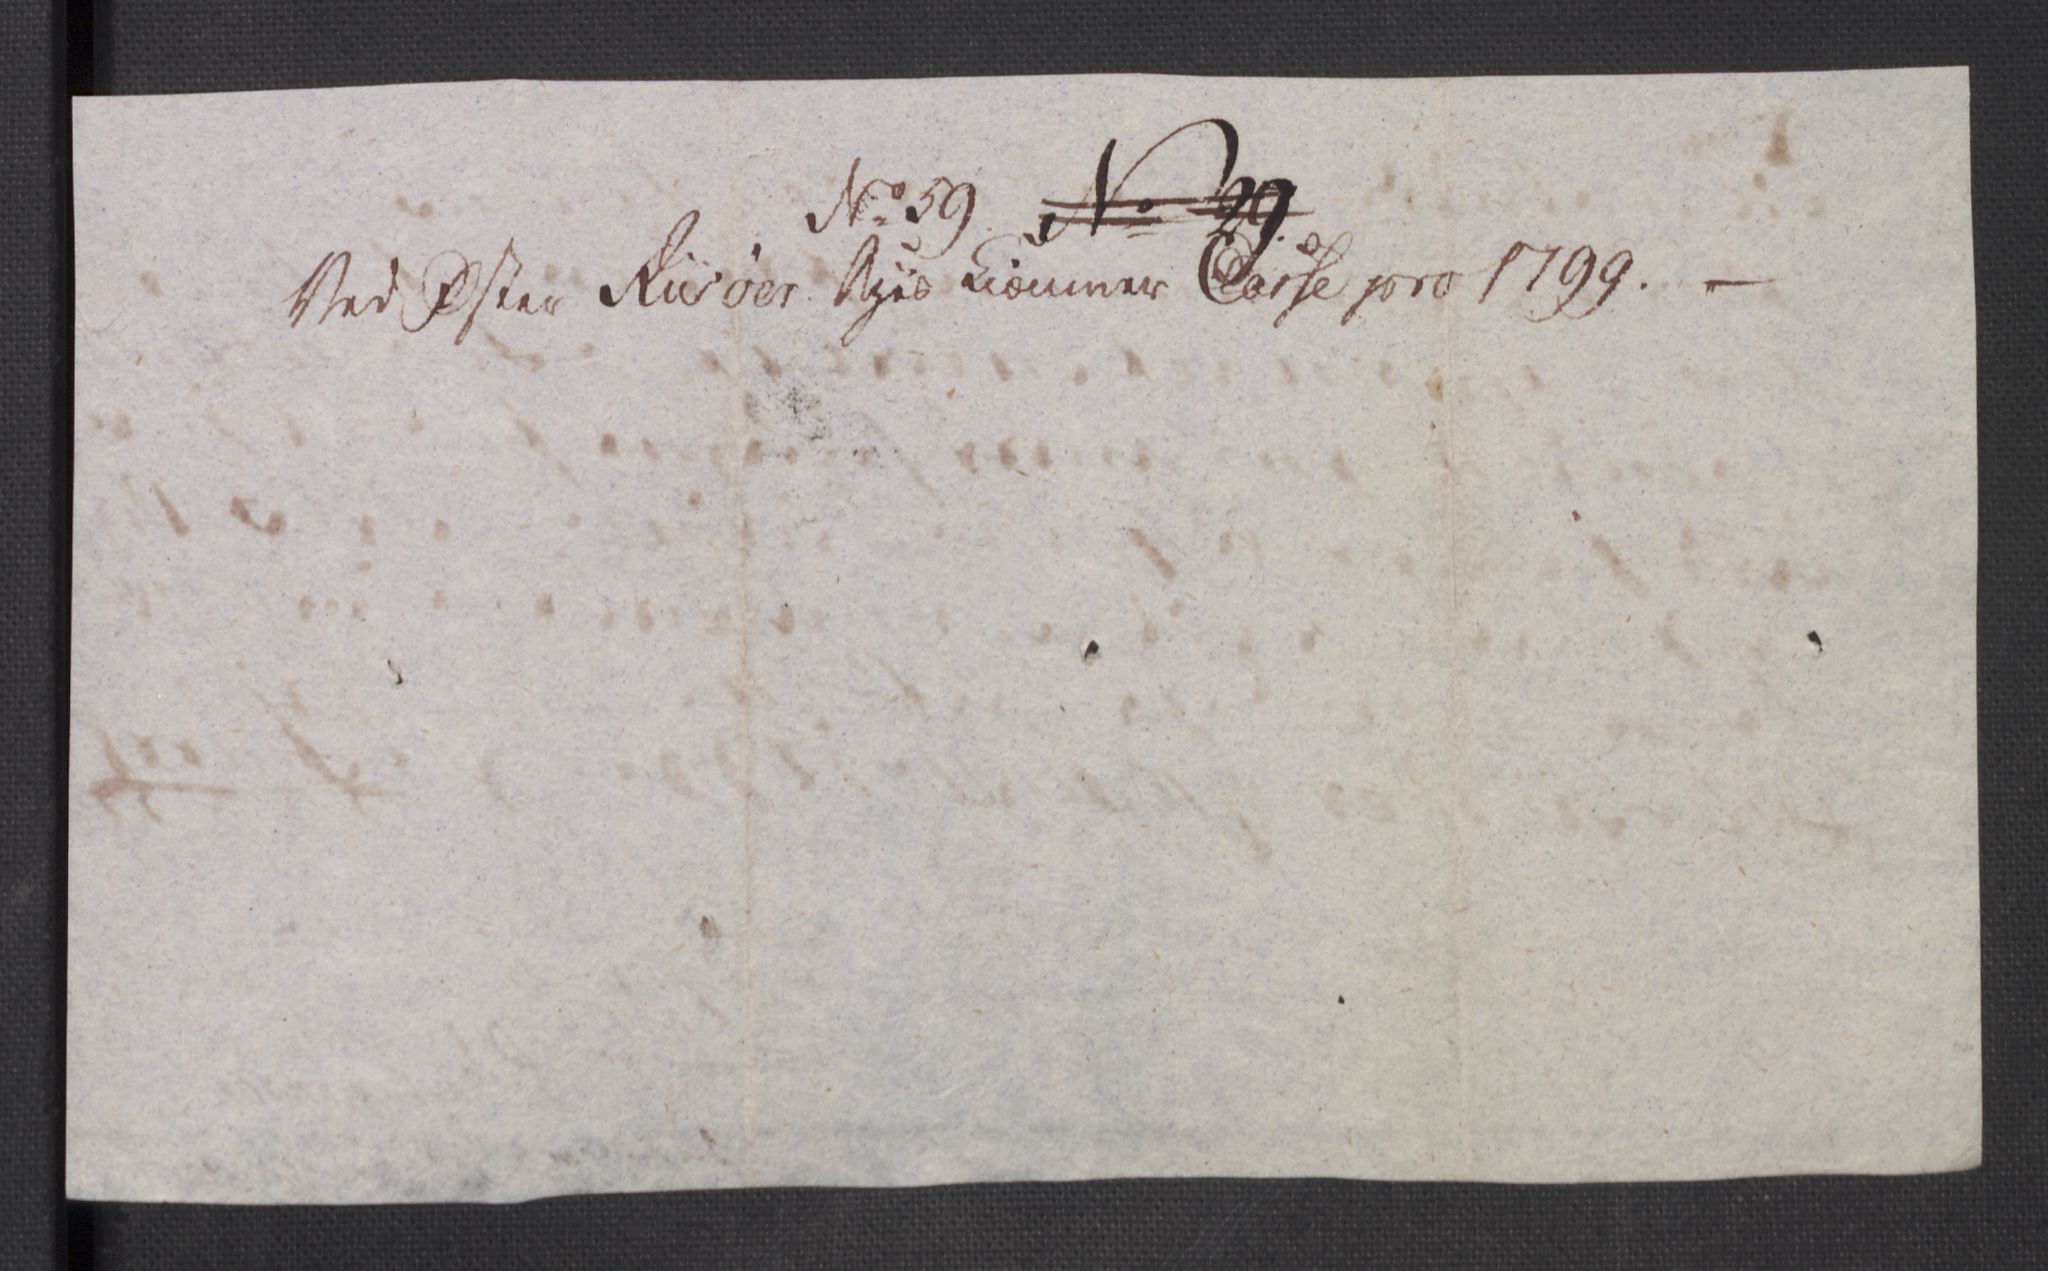 No 59. No 29.
Ved Øster Riisøer Byes Kiemner Casse pro 1799. —